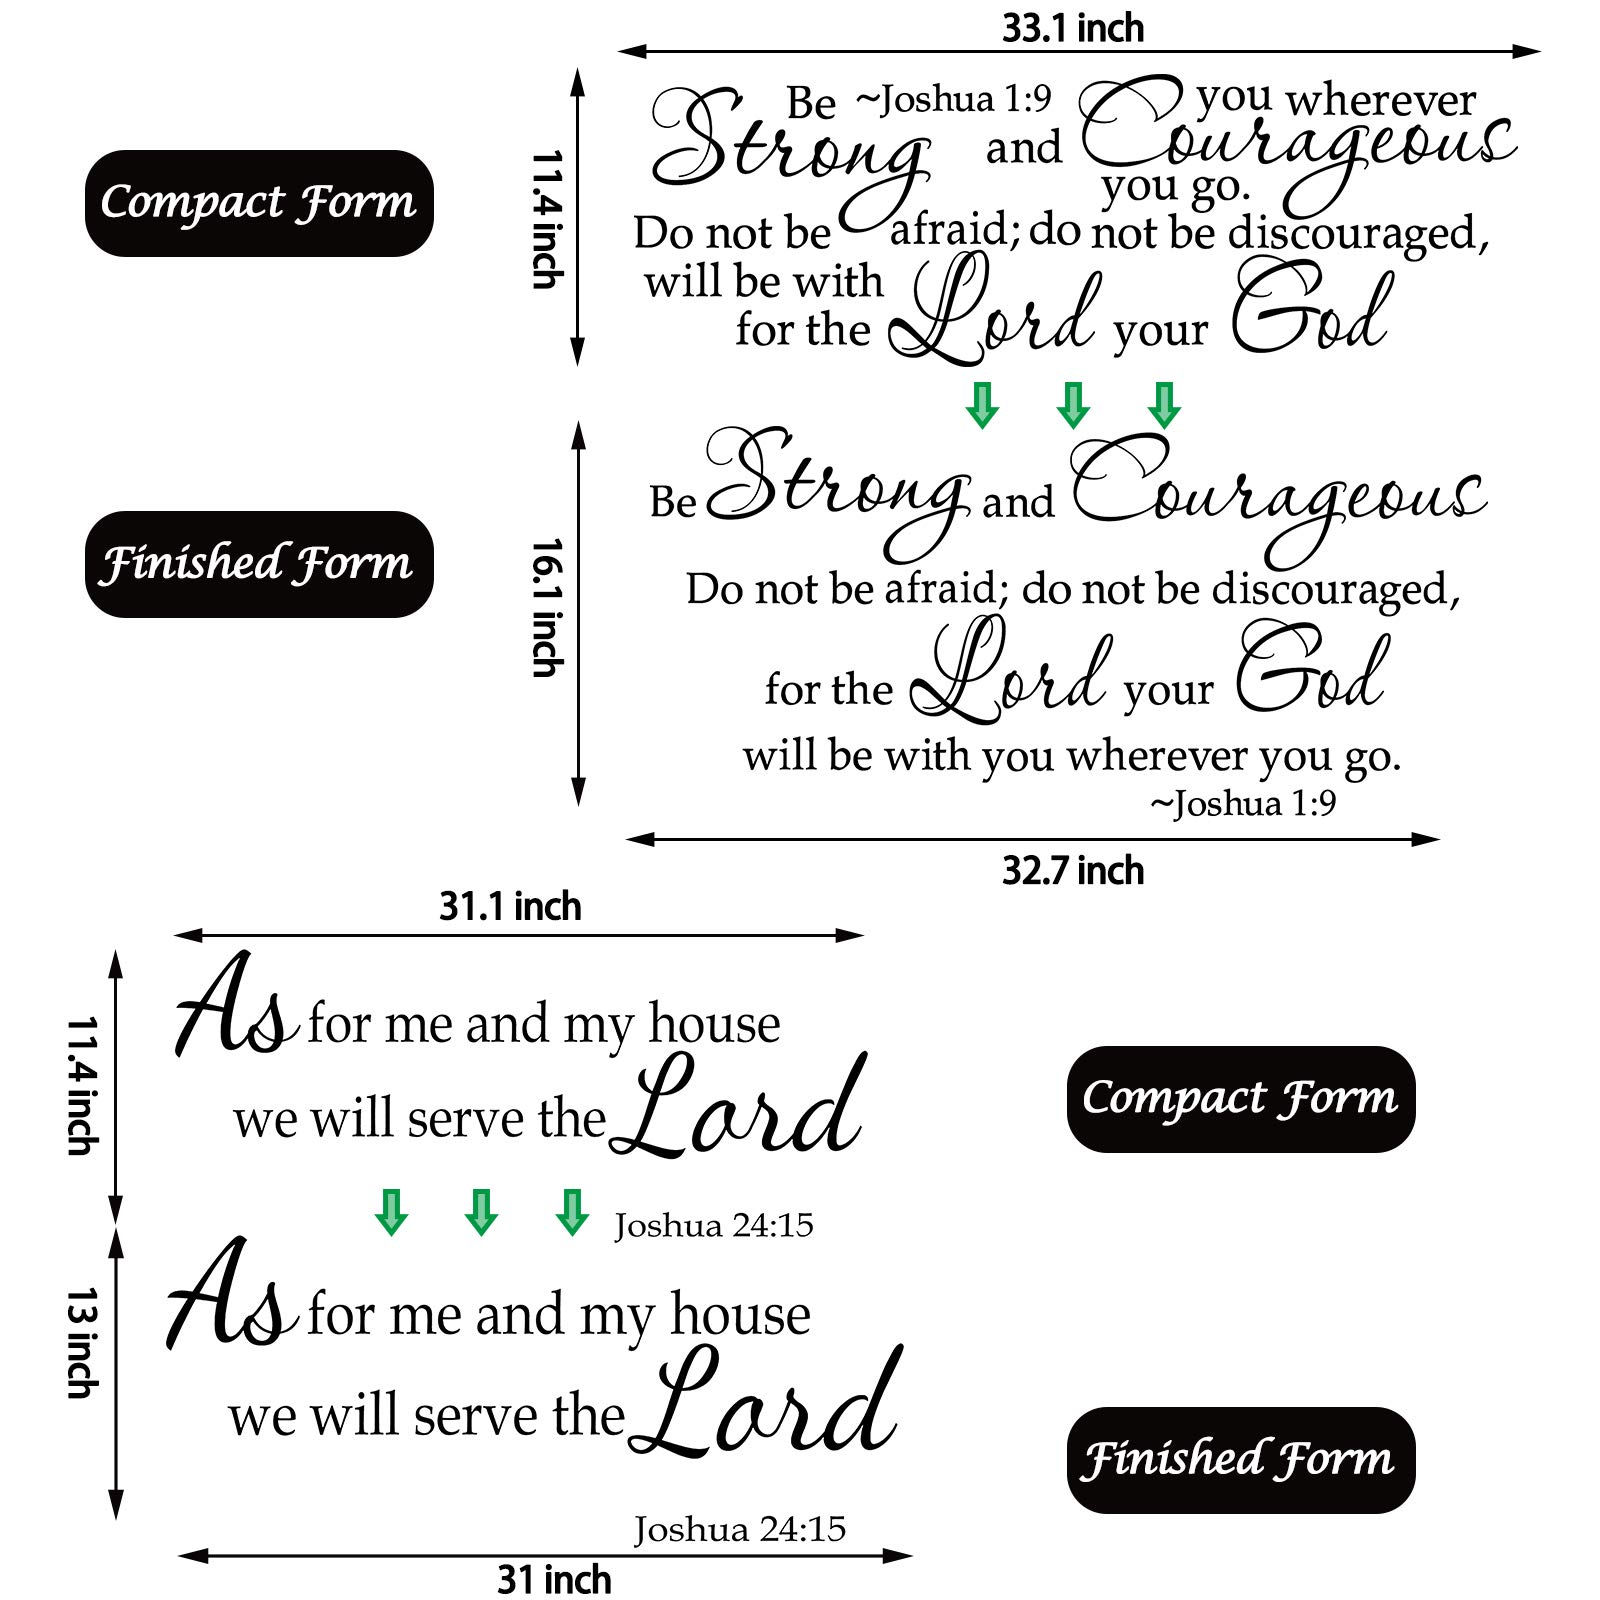 33.1 inch
11.4 inch
Compact Form
Be ~Joshua 1:9 you wherever
Strong and Courageous
you go.
Do not be afraid; do not be discouraged,
will be with
for the Lord your God
Be Strong and Courageous
Finished Form
16.1 inch
Do not be afraid; do not be discouraged,
for the Lord your God
will be with you wherever you go.
~Joshua 1:9
32.7 inch
31.1 inch
11.4 inch
As for me and my house
we will serve the Lord
Compact Form
Joshua 24:15
13 inch
As for me and my house
we will serve the Lord
Finished Form
Joshua 24:15
31 inch